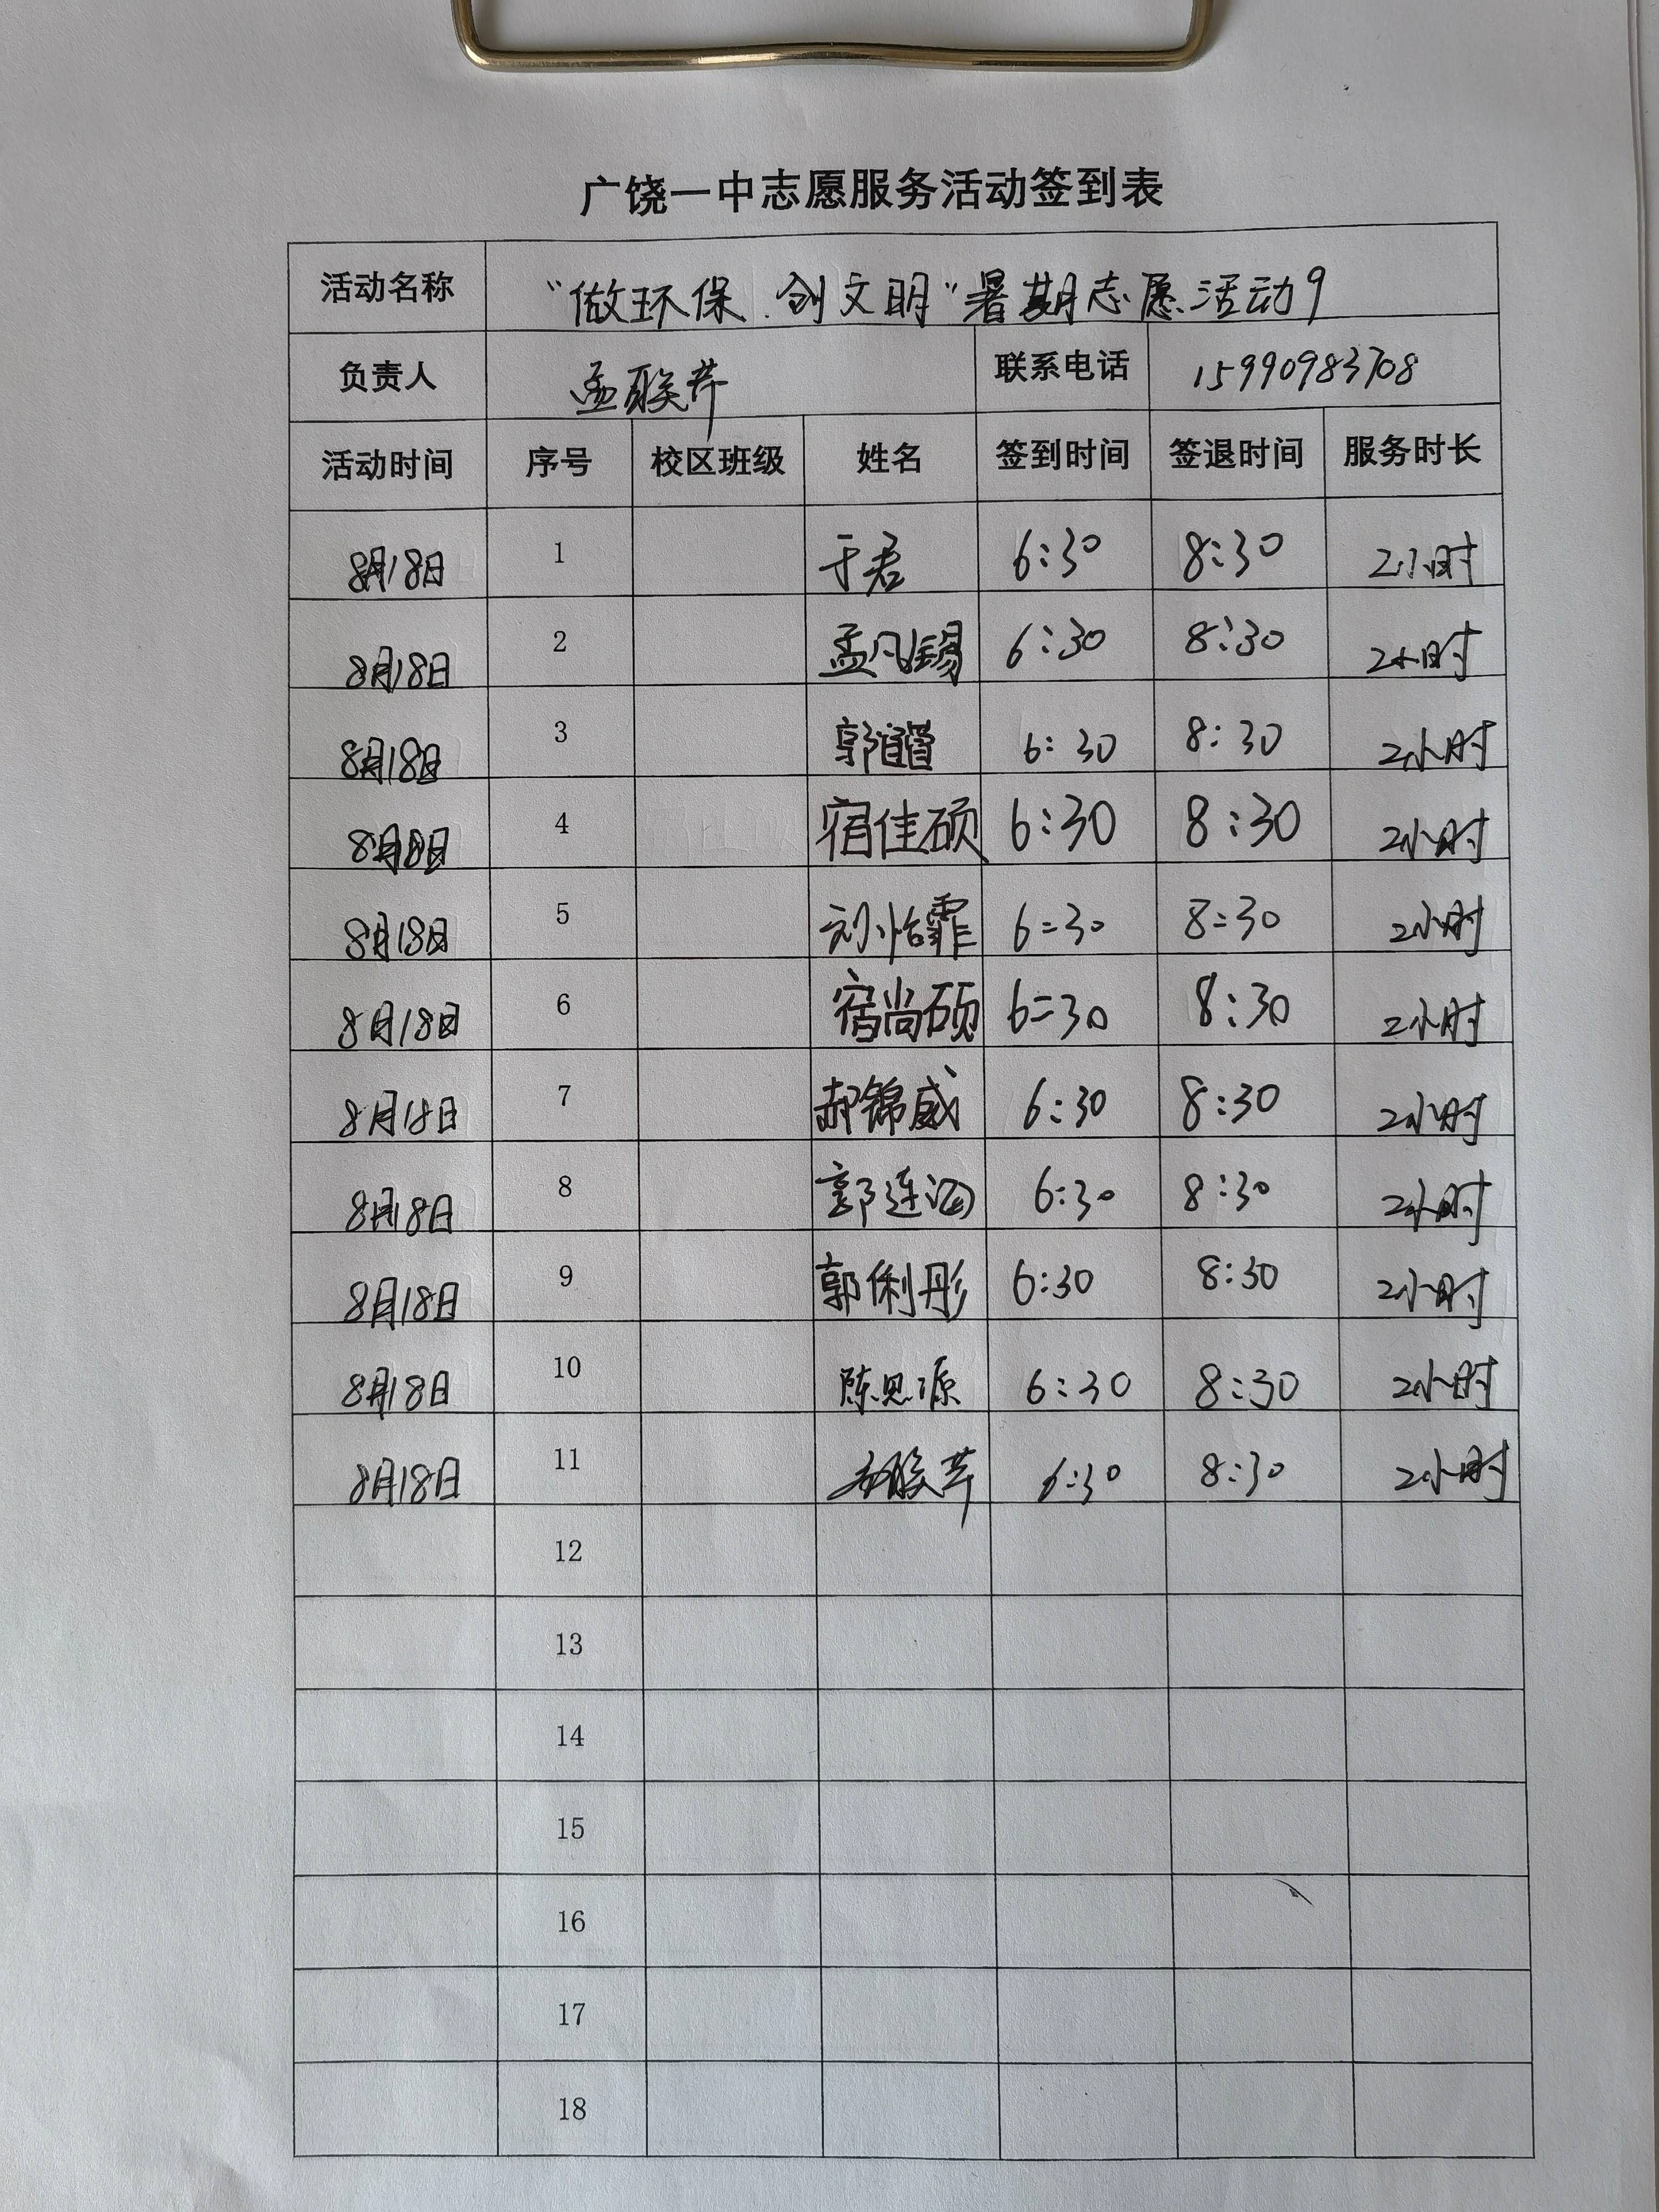 广饶一中志愿服务活动签到表
活动名称 “做环保.创文明”暑期志愿活动9
负责人 孟联芹 联系电话 15990983708
活动时间 序号 校区班级 姓名 签到时间 签退时间 服务时长
8月18日 1 于君 6:30 8:30 2小时
8月18日 2 孟凡锡 6:30 8:30 2小时
8月18日 3 郭 6:30 8:30 2小时
8月18日 4 宿佳硕 6:30 8:30 2小时
8月18日 5 刘怡霏 6:30 8:30 2小时
8月18日 6 宿尚硕 6:30 8:30 2小时
8月18日 7 郝锦威 6:30 8:30 2小时
8月18日 8 郭连 6:30 8:30 2小时
8月18日 9 郭俐彤 6:30 8:30 2小时
8月18日 10 陈思源 6:30 8:30 2小时
8月18日 11 6:30 8:30 2小时
12
13
14
15
16
17
18